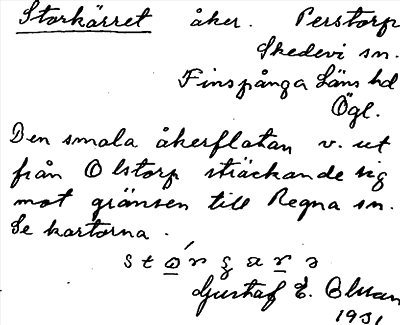 Storkärret åker. Perstorp
Skedevi sn.
Finspånga Läns hd
Ögl.
Den smala åkerflatan v. ut
från Olstorp sträckande sig
mot gränsen till Regna sn.
Se kartorna.
Gustaf E. Olsson
1931